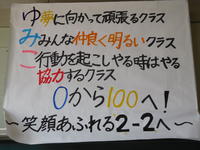 ゆ夢に向かって頑張るクラス
みみんな仲良く明るいクラス
こ行動を起こしやる時はやる
協力するクラス
0から100へ!
〜笑顔あふれる2-2へ〜